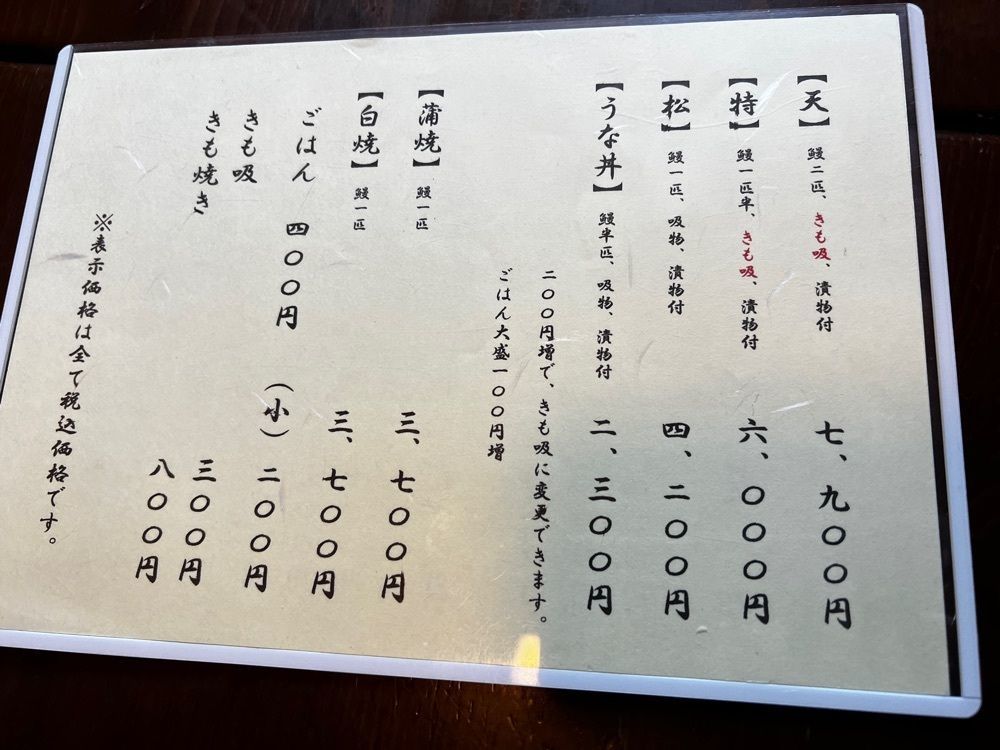 【天】 鰻二匹、きも吸、漬物付 七、九〇〇円
【特】 鰻一匹半、きも吸、漬物付 六、〇〇〇円
【松】 鰻一匹、吸物、漬物付 四、二〇〇円
【うな丼】 鰻半匹、吸物、漬物付 二、三〇〇円
二〇〇円増で、きも吸に変更できます。
ごはん大盛一〇〇円増
【蒲焼】 鰻一匹 三、七〇〇円
【白焼】 鰻一匹 三、七〇〇円
ごはん 四〇〇円 （小） 二〇〇円
きも吸 三〇〇円
きも焼き 八〇〇円
※表示価格は全て税込価格です。